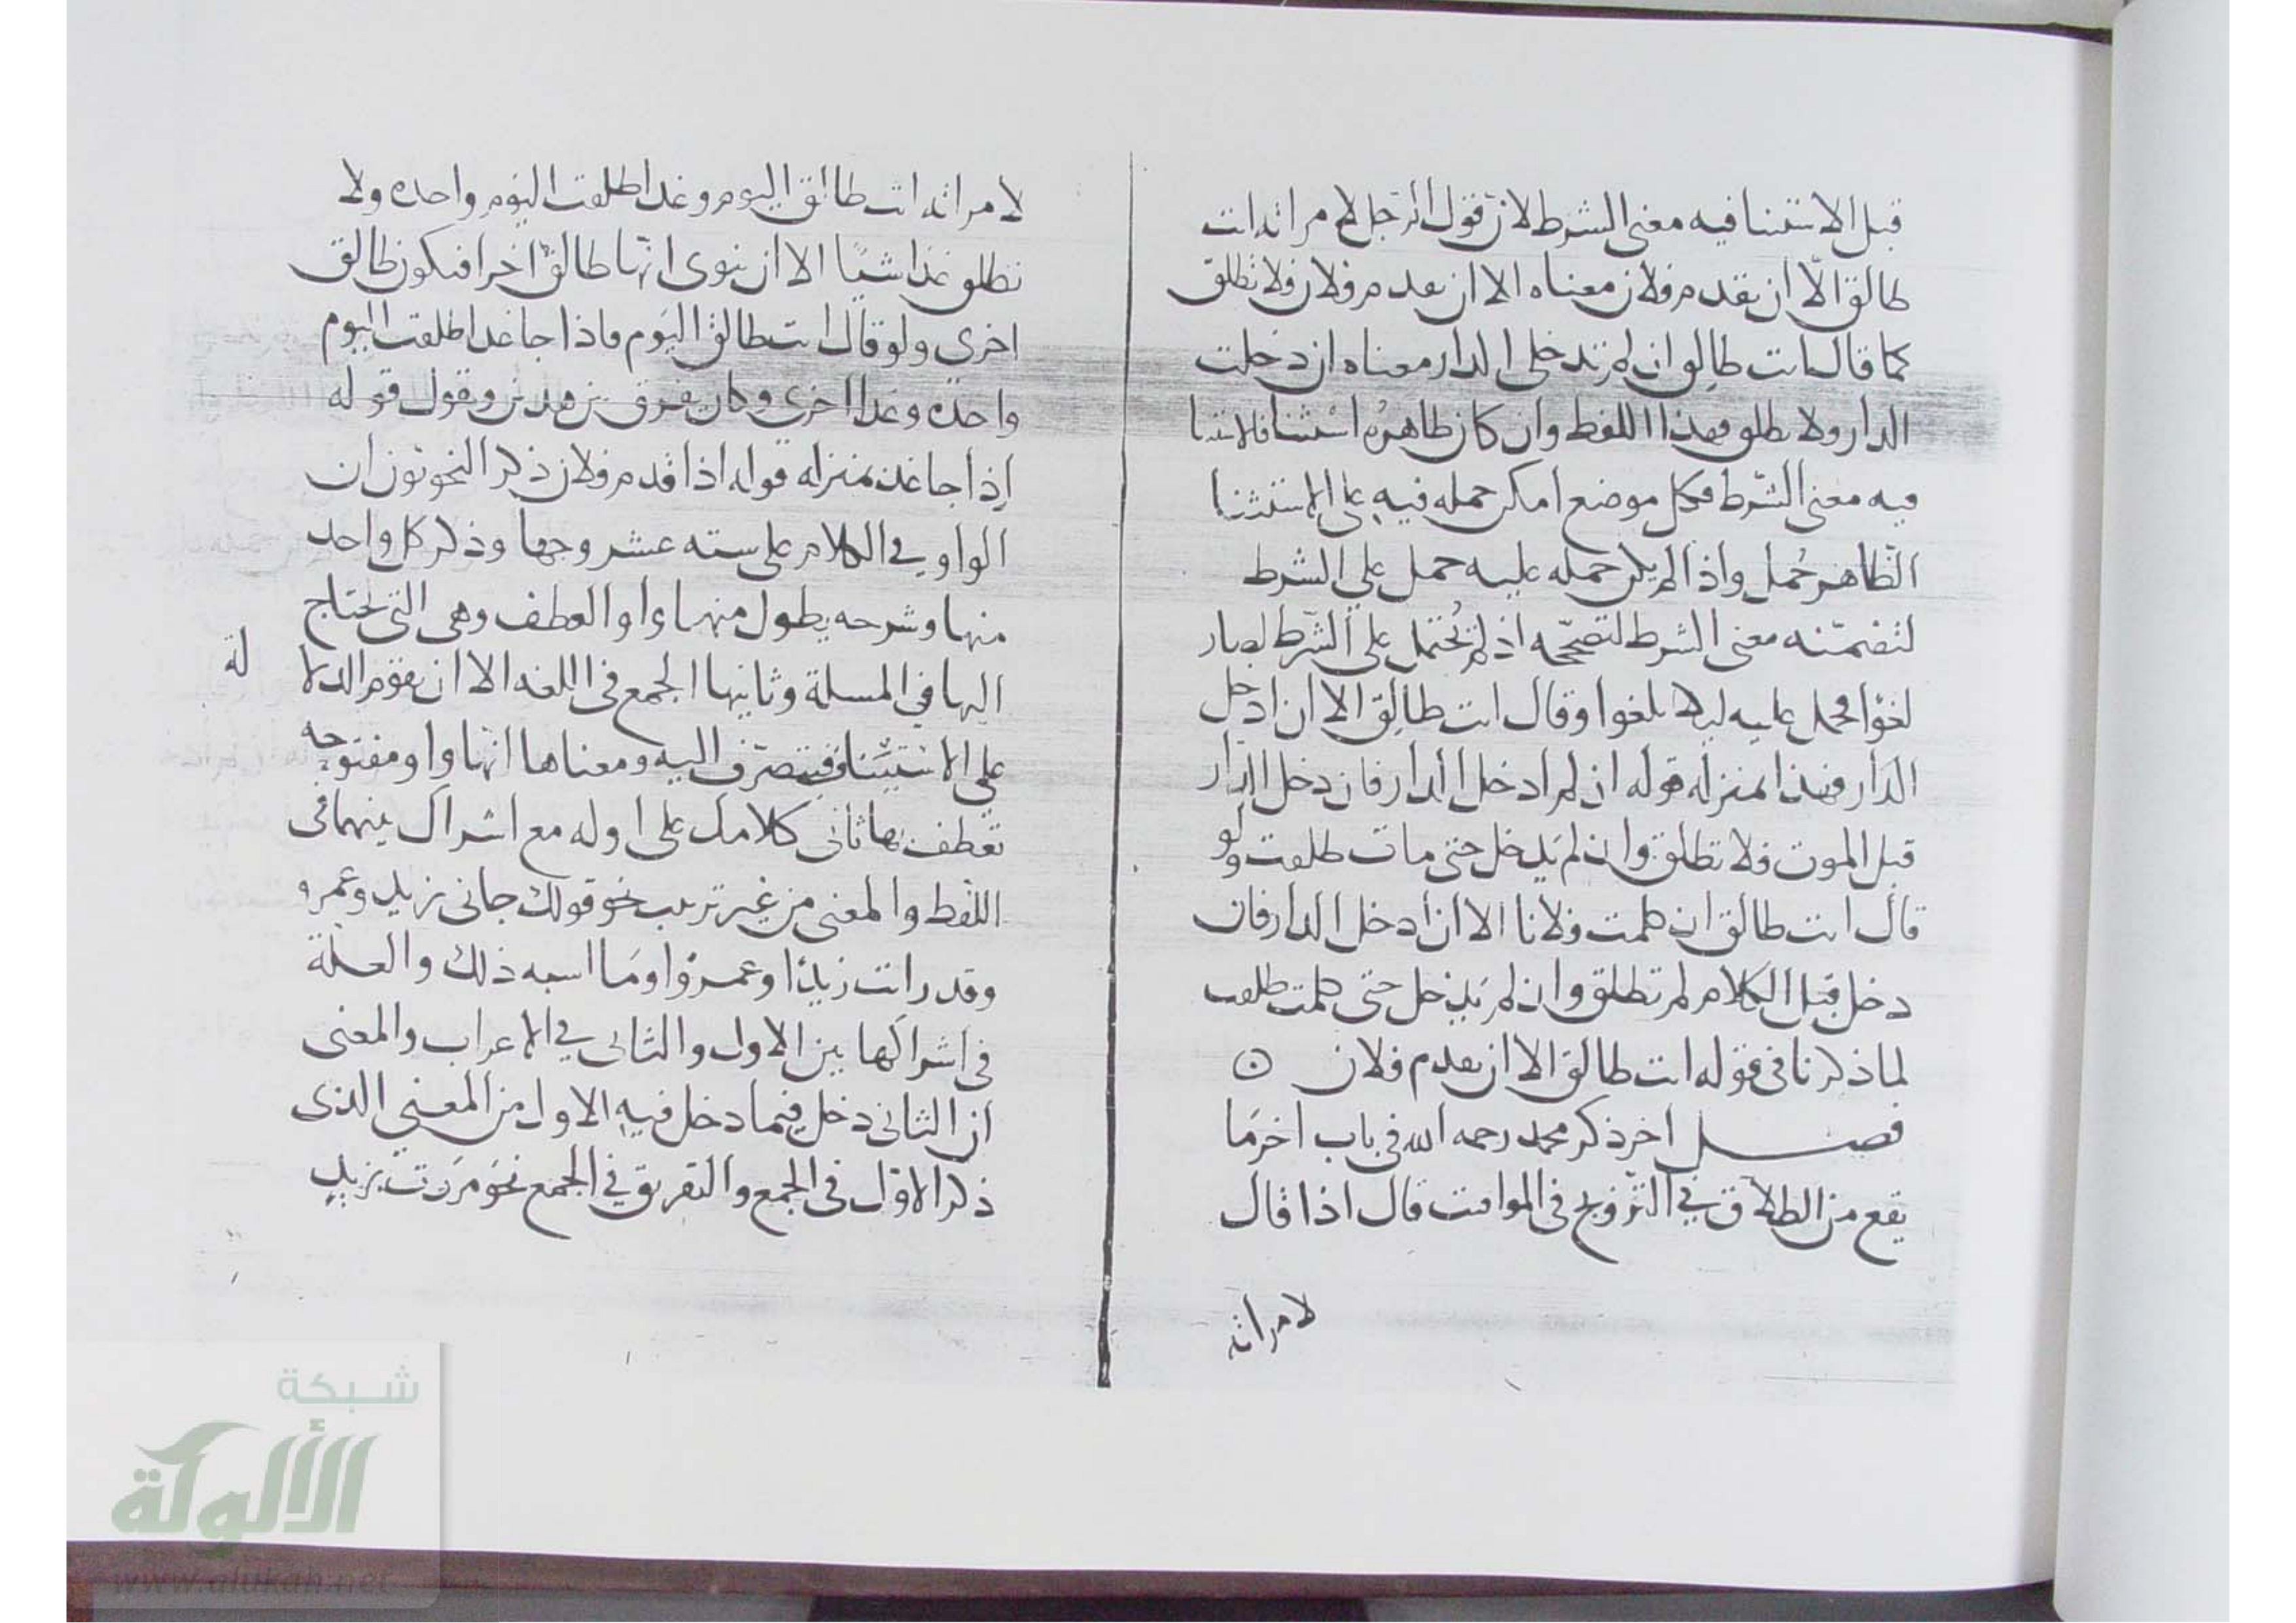 قبل الاستثنا فيه معنى الشرط لان قول الرجل لامراته انت
طالق الّا ان يقدم فلان معناه الا ان يقدم فلان فلا تطلق
كما قال انت طالق ان لم تدخلي الدار معناه ان دخلت
الدار ولا تطلق فهذا اللفظ وان كان ظاهرُه استثنا فالاستثنا
فيه معنى الشرط فكل موضع امكن حمله فيه على الاستثنا
الظاهر حُمل واذا لم يكن حمله عليه حمل على الشرط
لتضمّنه معنى الشرط لتصحّحه اذ لم يُحتمل على الشرط لصار
لغوًا فحمل عليه ليلا يلغوا وقال انت طالق الا ان ادخل
الدار فهذا بمنزله قوله ان لم ادخل الدار فان دخل الدار
قبل الموت فلا تطلق وان لم يدخل حتى مات طلقت ولو
قال انت طالق ان كلمت فلانا الا ان ادخل الدار فان
دخل قبل الكلام لم تطلق وان لم يدخل حتى كلمت طلقت
لما ذكرنا في قوله انت طالق الا ان يقدم فلان
فصل اخر ذكر محمد رحمه الله في باب اخر مَا
يقع من الطلاق في التزويج في المواقت قال اذا قال
لامراته
لامراته انت طالق اليوم وغدا طلقت اليوم واحده ولا
تطلق غدا شيًا الا ان ينوى انّها طالق اخرا فتكون طالق
اخرى ولو قال انت طالق اليوم فاذا جا غدا طلقت اليوم
واحده وغدا اخرى وكان يفرق بين هذين ويقول قوله
إذا جا غد بمنزله قوله اذا قدم فلان ذكر النحويون ان
الواو في الكلام على سته عشر وجها وذكر كل واحد
منها وشرحه يطول منها واو العطف وهي التي نحتاج
اليها في المسلة وثانيها الجمع في اللغه الا ان يقوم الدلالة
على الاستيناف فيتصرّف اليه ومعناها انّها واو مفتوحه
تعطف بها ثاني كلامك على اوله مع اشراك بينهما في
اللفظ والمعنى من غير ترتيب نحو قولك جاني زيد وعمرو
وقد رات زيدًا وعمروًا ومَا اسبه ذلك والعلة
في اشراكها بين الاول والثاني في الاعراب والمعنى
ان الثاني دخل فيما دخل فيه الاول من المعنى الذي
ذكر الاوّل في الجمع والتفريق في الجمع نحو مَررت بزيد
شبكة
الألوكة
www.alukah.net